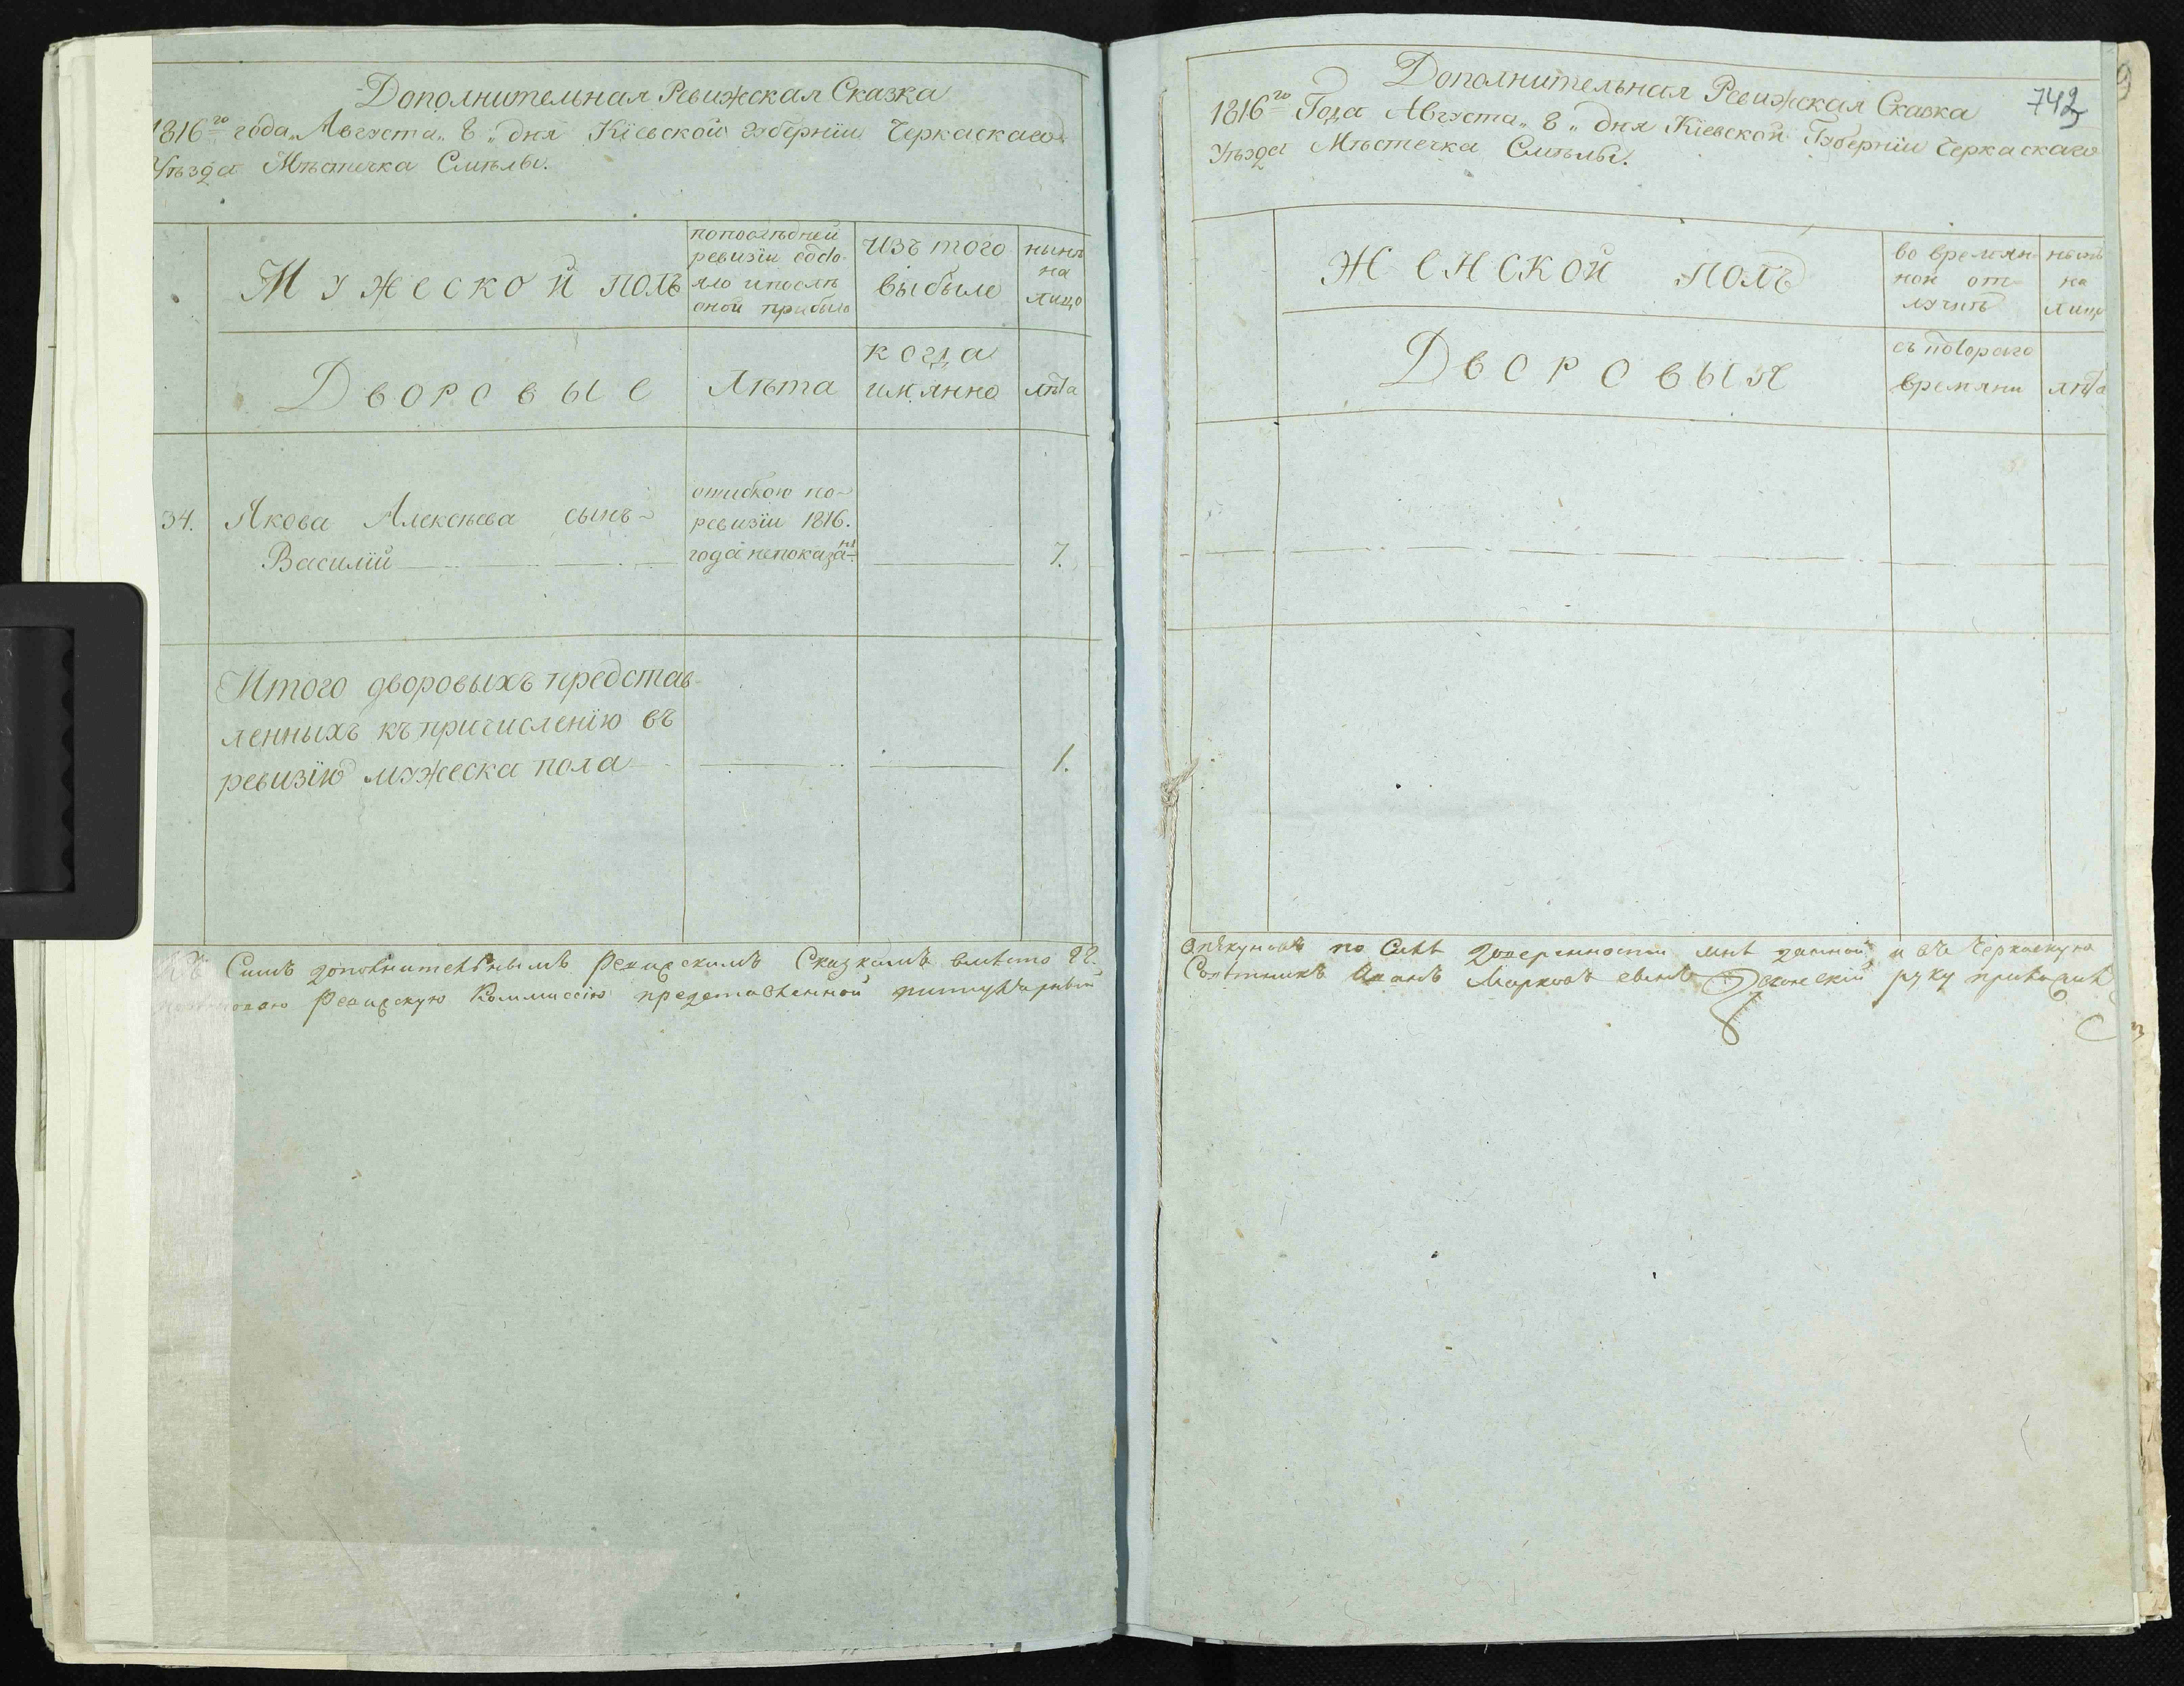 Дополнительная Ревижская Сказка
1816го года Августа „8„ дня Кіевской губерніи Черкаскаго
Уѣзда Мѣстечка Смѣлы.
Мужеской полъ
попослѣдней
ревизіи состо-
яло ипослѣ
оной прибыло
изъ того
выбыло
нынѣ
на
лицо
Дворовые
Лѣта
когда
имянно
лѣта
34. Якова Алексѣева сынъ
Василій
ошибкою по
ревизіи 1816.
года непоказанъ
7.
Итого дворовыхъ представ-
ленныхъ къ причисленію въ
ревизію мужеска пола
1.
Къ Симъ дополнительнымъ Ревижскимъ Сказкамъ вмѣсто ГГ.
Ревижскую Коммиссію представленной титулярный
742
Дополнительная Ревижская Сказка
1816го Года Августа „8„ дня Кіевской Губерніи Черкаскаго
Уѣзда Мѣстечка Смѣлы.
Женской полъ
во времян-
ной от-
лучкѣ
нынѣ
на
лицо
Дворовыя
съ котораго
времяни
лѣта
Опѣкуновъ по Силѣ доверенности мнѣ данной и въ Черкаскую
Совѣтникъ Иванъ Марковъ сынъ руку приложилъ